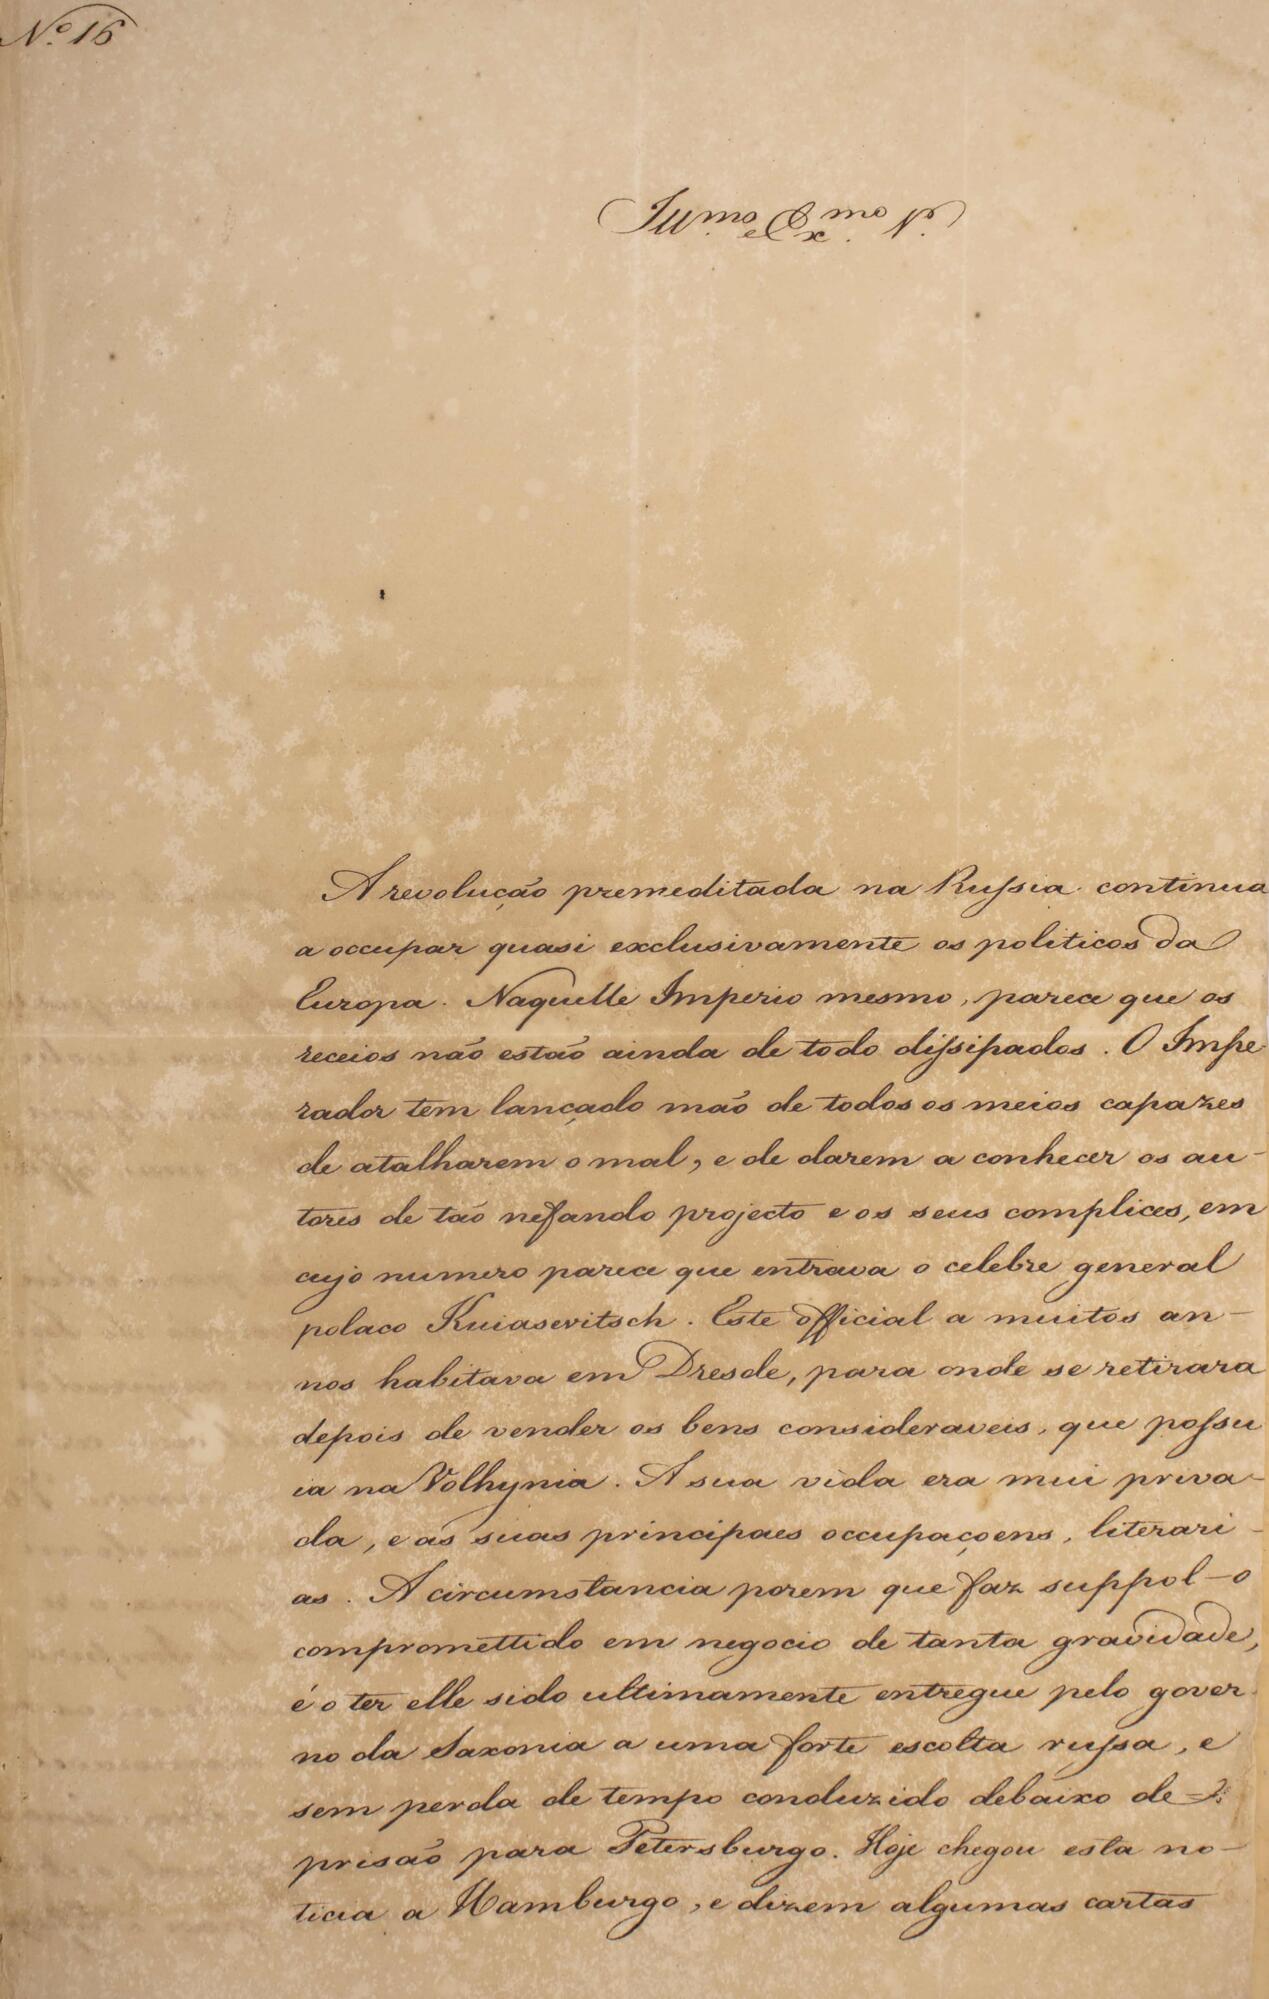 Nº 16
Illmo. e Exmo. Sr.
A revolução premeditada na Russia continua
a occupar quasi exclusivamente os politicos da
Europa. Naquelle Imperio mesmo, parece que os
receios não estão ainda de todo dissipados. O Impe
rador tem lançado mão de todos os meios capazes
de atalharem o mal, e de darem a conhecer os au-
tores de tão nefando projecto e os seus complices, em
cujo numero parece que entrava o celebre general
polaco Kniasevitsch. Este official a muitos an-
nos habitava em Dresde, para onde se retirara
depois de vender os bens consideraveis, que possu
ia na Volhynia. A sua vida era mui priva-
da, e as suas principaes occupaçoens, literari-
as. A circumstancia porem que faz suppol-o
compromettido em negocio de tanta gravidade,
é o ter elle sido ultimamente entregue pelo gover
no da Saxonia a uma forte escolta russa, e
sem perda de tempo conduzido debaixo de
prisão para Petersburgo. Hoje chegou esta no-
ticia a Hamburgo, e dizem algumas cartas